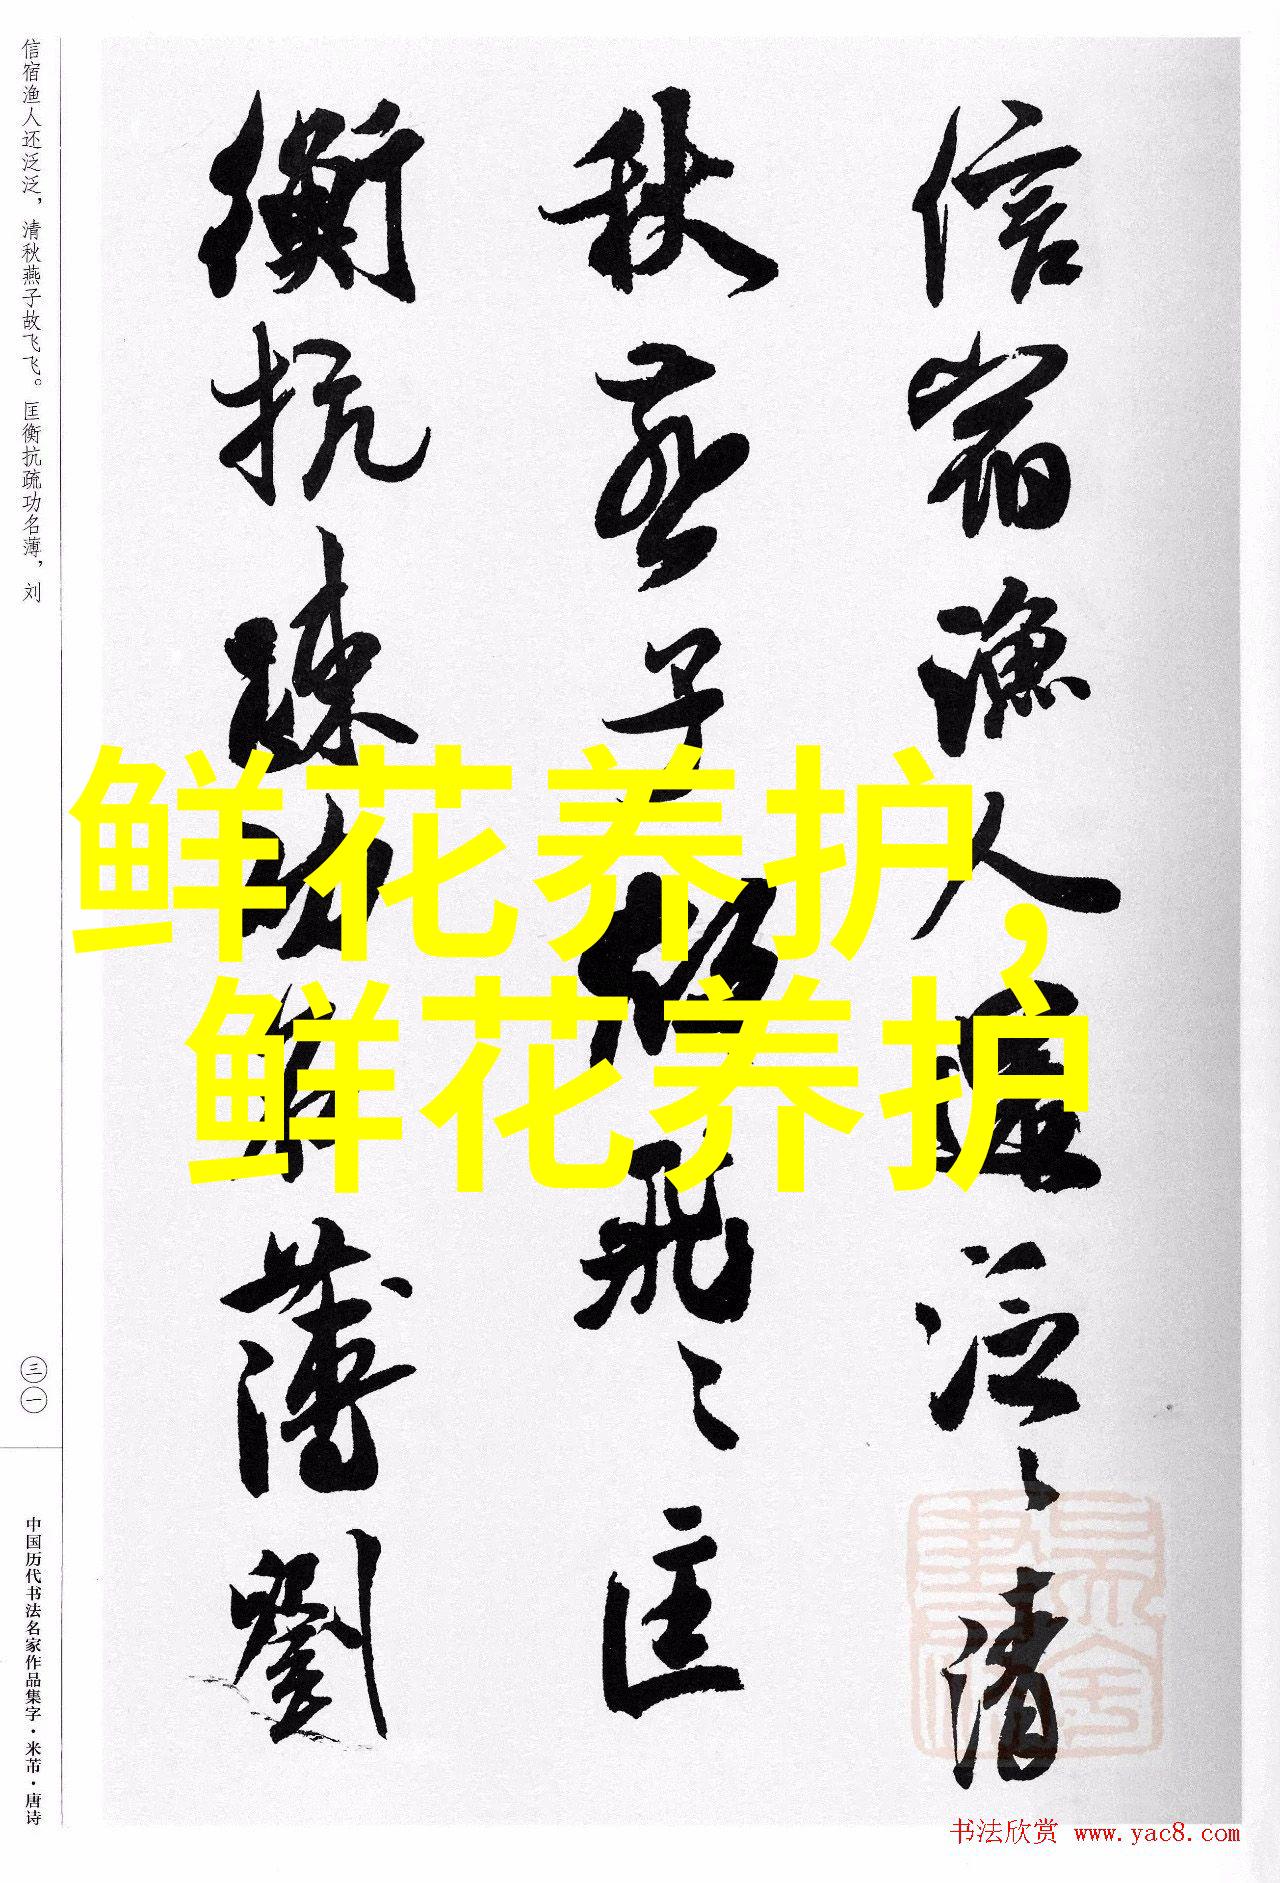 信宿渔人还泛泛，清秋燕子故飞飞。匡衡抗疏功名薄，刘
信宿漁人還泛〻清
秋燕子故飛〻匡
衡抗疎功名薄劉
鲜花养护，
鲜花养护
三一
中国历代书法名家作品集字·米芾·唐诗
书法欣赏 www.yac8.com